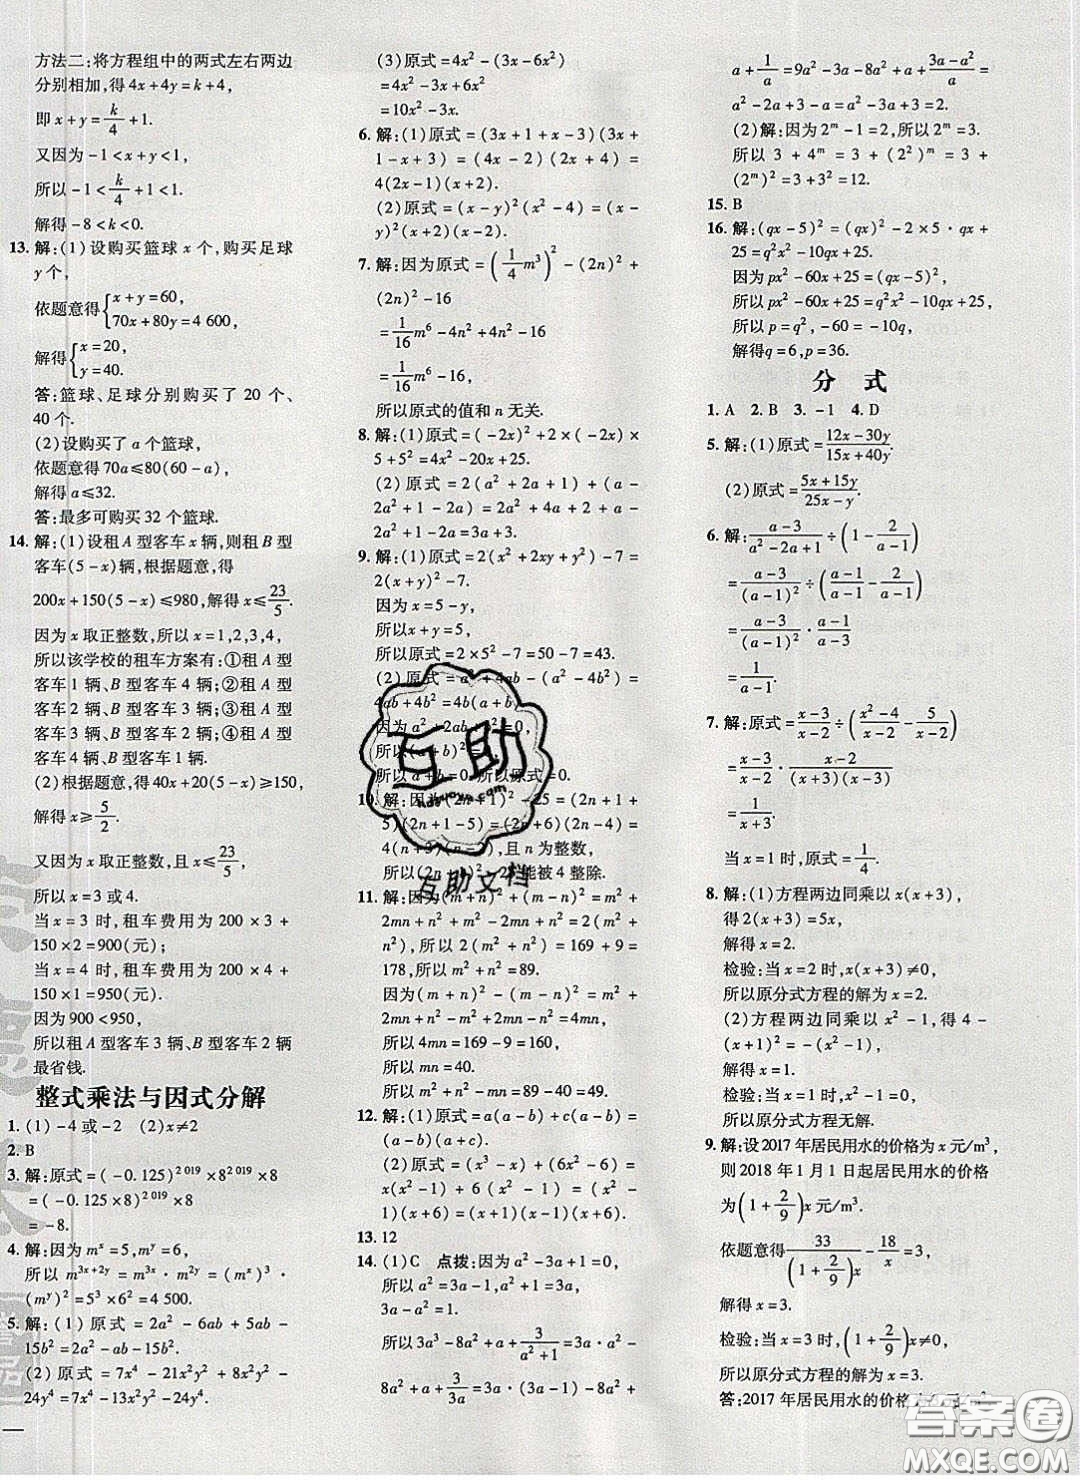 方法二:将方程组中的两式左右两边
分别相加,得 4x+4y=k+4,
即 x+y=k/4+1.
又因为 -1<x+y<1,
所以 -1<k/4+1<1.
解得 -8<k<0.
13. 解:(1)设购买篮球 x 个,购买足球
y 个,
依题意得{x+y=60, 70x+80y=4 600,
解得{x=20, y=40.
答:篮球、足球分别购买了 20 个、
40 个.
(2)设购买了 a 个篮球,
依题意得70a≤80(60-a),
解得 a≤32.
答:最多可购买 32 个篮球.
14. 解:(1)设租A型客车 x 辆,则租B型
客车(5-x)辆,根据题意,得
200x+150(5-x)≤980,解得 x≤23/5.
因为 x 取正整数,所以 x=1,2,3,4,
所以该学校的租车方案有:①租A型
客车 1 辆、B型客车 4 辆;②租A型
客车 2 辆、B型客车 3 辆;③租A型
客车 3 辆、B型客车 2 辆;④租A型
客车 4 辆、B型客车 1 辆.
(2)根据题意,得40x+20(5-x)≥150,
解得 x≥5/2.
又因为 x 取正整数,且 x≤23/5,
所以 x=3 或4.
当 x=3 时,租车费用为 200×3+
150×2=900(元);
当 x=4 时,租车费用为 200×4+
150×1=950(元).
因为 900<950,
所以租A型客车 3 辆、B型客车 2 辆
最省钱.
整式乘法与因式分解
1. (1)-4 或 -2 (2)x≠2
2. B
3. 解:原式=(-0.125)^2 019×8^2 019×8
=(-0.125×8)^2 019×8
=-8.
4. 解:因为 m^x=5,m^y=6,
所以 m^3x+2y=m^3x·m^2y=(m^x)^3·
(m^y)^2=5^3×6^2=4 500.
5. 解:(1)原式=2a²-6ab+5ab-
15b²=2a²-ab-15b².
(2)原式=7x⁴-21x²y²+8x²y²-
24y⁴=7x⁴-13x²y²-24y⁴.
(3)原式=4x²-(3x-6x²)
=4x²-3x+6x²
=10x²-3x.
6. 解:(1)原式=(3x+1+x-3)(3x+
1-x+3)=(4x-2)(2x+4)=
4(2x-1)(x+2).
(2)原式=(x-y)²(x²-4)=(x-
y)²(x+2)(x-2).
7. 解:因为原式=(1/4 m³)²-(2n)²+
(2n)²-16
=1/16 m⁶-4n²+4n²-16
=1/16 m⁶-16,
所以原式的值和 n 无关.
8. 解:(1)原式=(-2x)²+2×(-2x)×
5+5²=4x²-20x+25.
(2)原式=(a²+2a+1)+(2a-
2a²+1-a)=a²+2a+1+2a-
2a²+1-2a=3a+3.
9. 解:(1)原式=2(x²+2xy+y²)-7=
2(x+y)²-7.
因为 x=5-y,
所以 x+y=5,
所以原式=2×5²-7=50-7=43.
(2)原式=a²+4ab-(a²-4b²)=
4ab+4b²=4b(a+b).
因为 a²+2ab+b²=0,
所以(a+b)²=0,
所以 a+b=0.所以原式=0.
10. 解:因为(2n+1)²-25=(2n+1+
5)(2n+1-5)=(2n+6)(2n-4)=
4(n+3)(n-2),且 n 为整数,
所以(2n+1)²-25能被 4 整除.
11. 解:因为(m+n)²+(m-n)²=m²+
2mn+n²+m²-2mn+n²=2(m²+
n²),所以 2(m²+n²)=169+9=
178,所以 m²+n²=89.
因为(m+n)²-(m-n)²=m²+
2mn+n²-m²+2mn-n²=4mn,
所以4mn=169-9=160,
所以mn=40.
12. 解:(1)原式=a(a-b)+c(a-b)=
(a-b)(a+c).
(2)原式=(x³-x)+(6x²-6)=
x(x²-1)+6(x²-1)=(x²-
1)(x+6)=(x+1)(x-1)(x+6).
13. 12
14. (1)C 点拨:因为 a²-3a+1=0,
所以 a²=3a-1,a²+1=3a,
3a=a²+1.
所以3a³-8a²+a+3/(a²+1)=3a·a²-
8a²+a+3/3a=3a(3a-1)-8a²+
a+1/a=9a²-3a-8a²+a+(3a-a²)/a=
a²-2a+3-a=a²-3a+3=2.
(2)解:因为 2^m-1=2,所以 2^m=
3,所以 3+4^m=3+(2²)^m=3+
(2^m)²=3+3²=12.
15. B
16. 解:(qx-5)²=(qx)²-2×5·qx+
25=q²x²-10qx+25.
因为px²-60x+25=(qx-5)²,
所以px²-60x+25=q²x²-10qx+25,
所以p=q²,-60=-10q,
解得q=6,p=36.
分 式
1. A 2. B 3. -1 4. D
5. 解:(1)原式=(12x-30y)/(15x+40y).
(2)原式=(5x+15y)/(25x-y).
6. 解:(a-3)/(a²-2a+1)÷(1-2/(a-1))
=(a-3)/(a-1)²÷((a-1)/(a-1)-2/(a-1))
=(a-3)/(a-1)²·(a-1)/(a-3)
=1/(a-1).
7. 解:原式=(x-3)/(x-2)÷((x²-4)/(x-2)-5/(x-2))
=(x-3)/(x-2)·(x-2)/((x+3)(x-3))
=1/(x+3).
当 x=1 时,原式=1/4.
8. 解:(1)方程两边同乘以 x(x+3),
得 2(x+3)=5x,
解得 x=2.
检验:当 x=2 时,x(x+3)≠0,
所以原分式方程的解为 x=2.
(2)方程两边同乘以 x²-1,得 4-
(x+1)²=-x²+1.
解得 x=1.
检验:当 x=1 时,x²-1=0,
所以原分式方程无解.
9. 解:设 2017 年居民用水的价格为 x 元/m³,
则 2018 年 1 月 1 日起居民用水的价格
为(1+2/9)x 元/m³.
依题意得33/((1+2/9)x)-18/x=3,
解得 x=3.
检验:当 x=3 时,(1+2/9)x≠0,
所以原分式方程的解为 x=3.
答:2017 年居民用水的价格
互助
hdzuoye.com
互助文档
答案圈
MXQE.COM